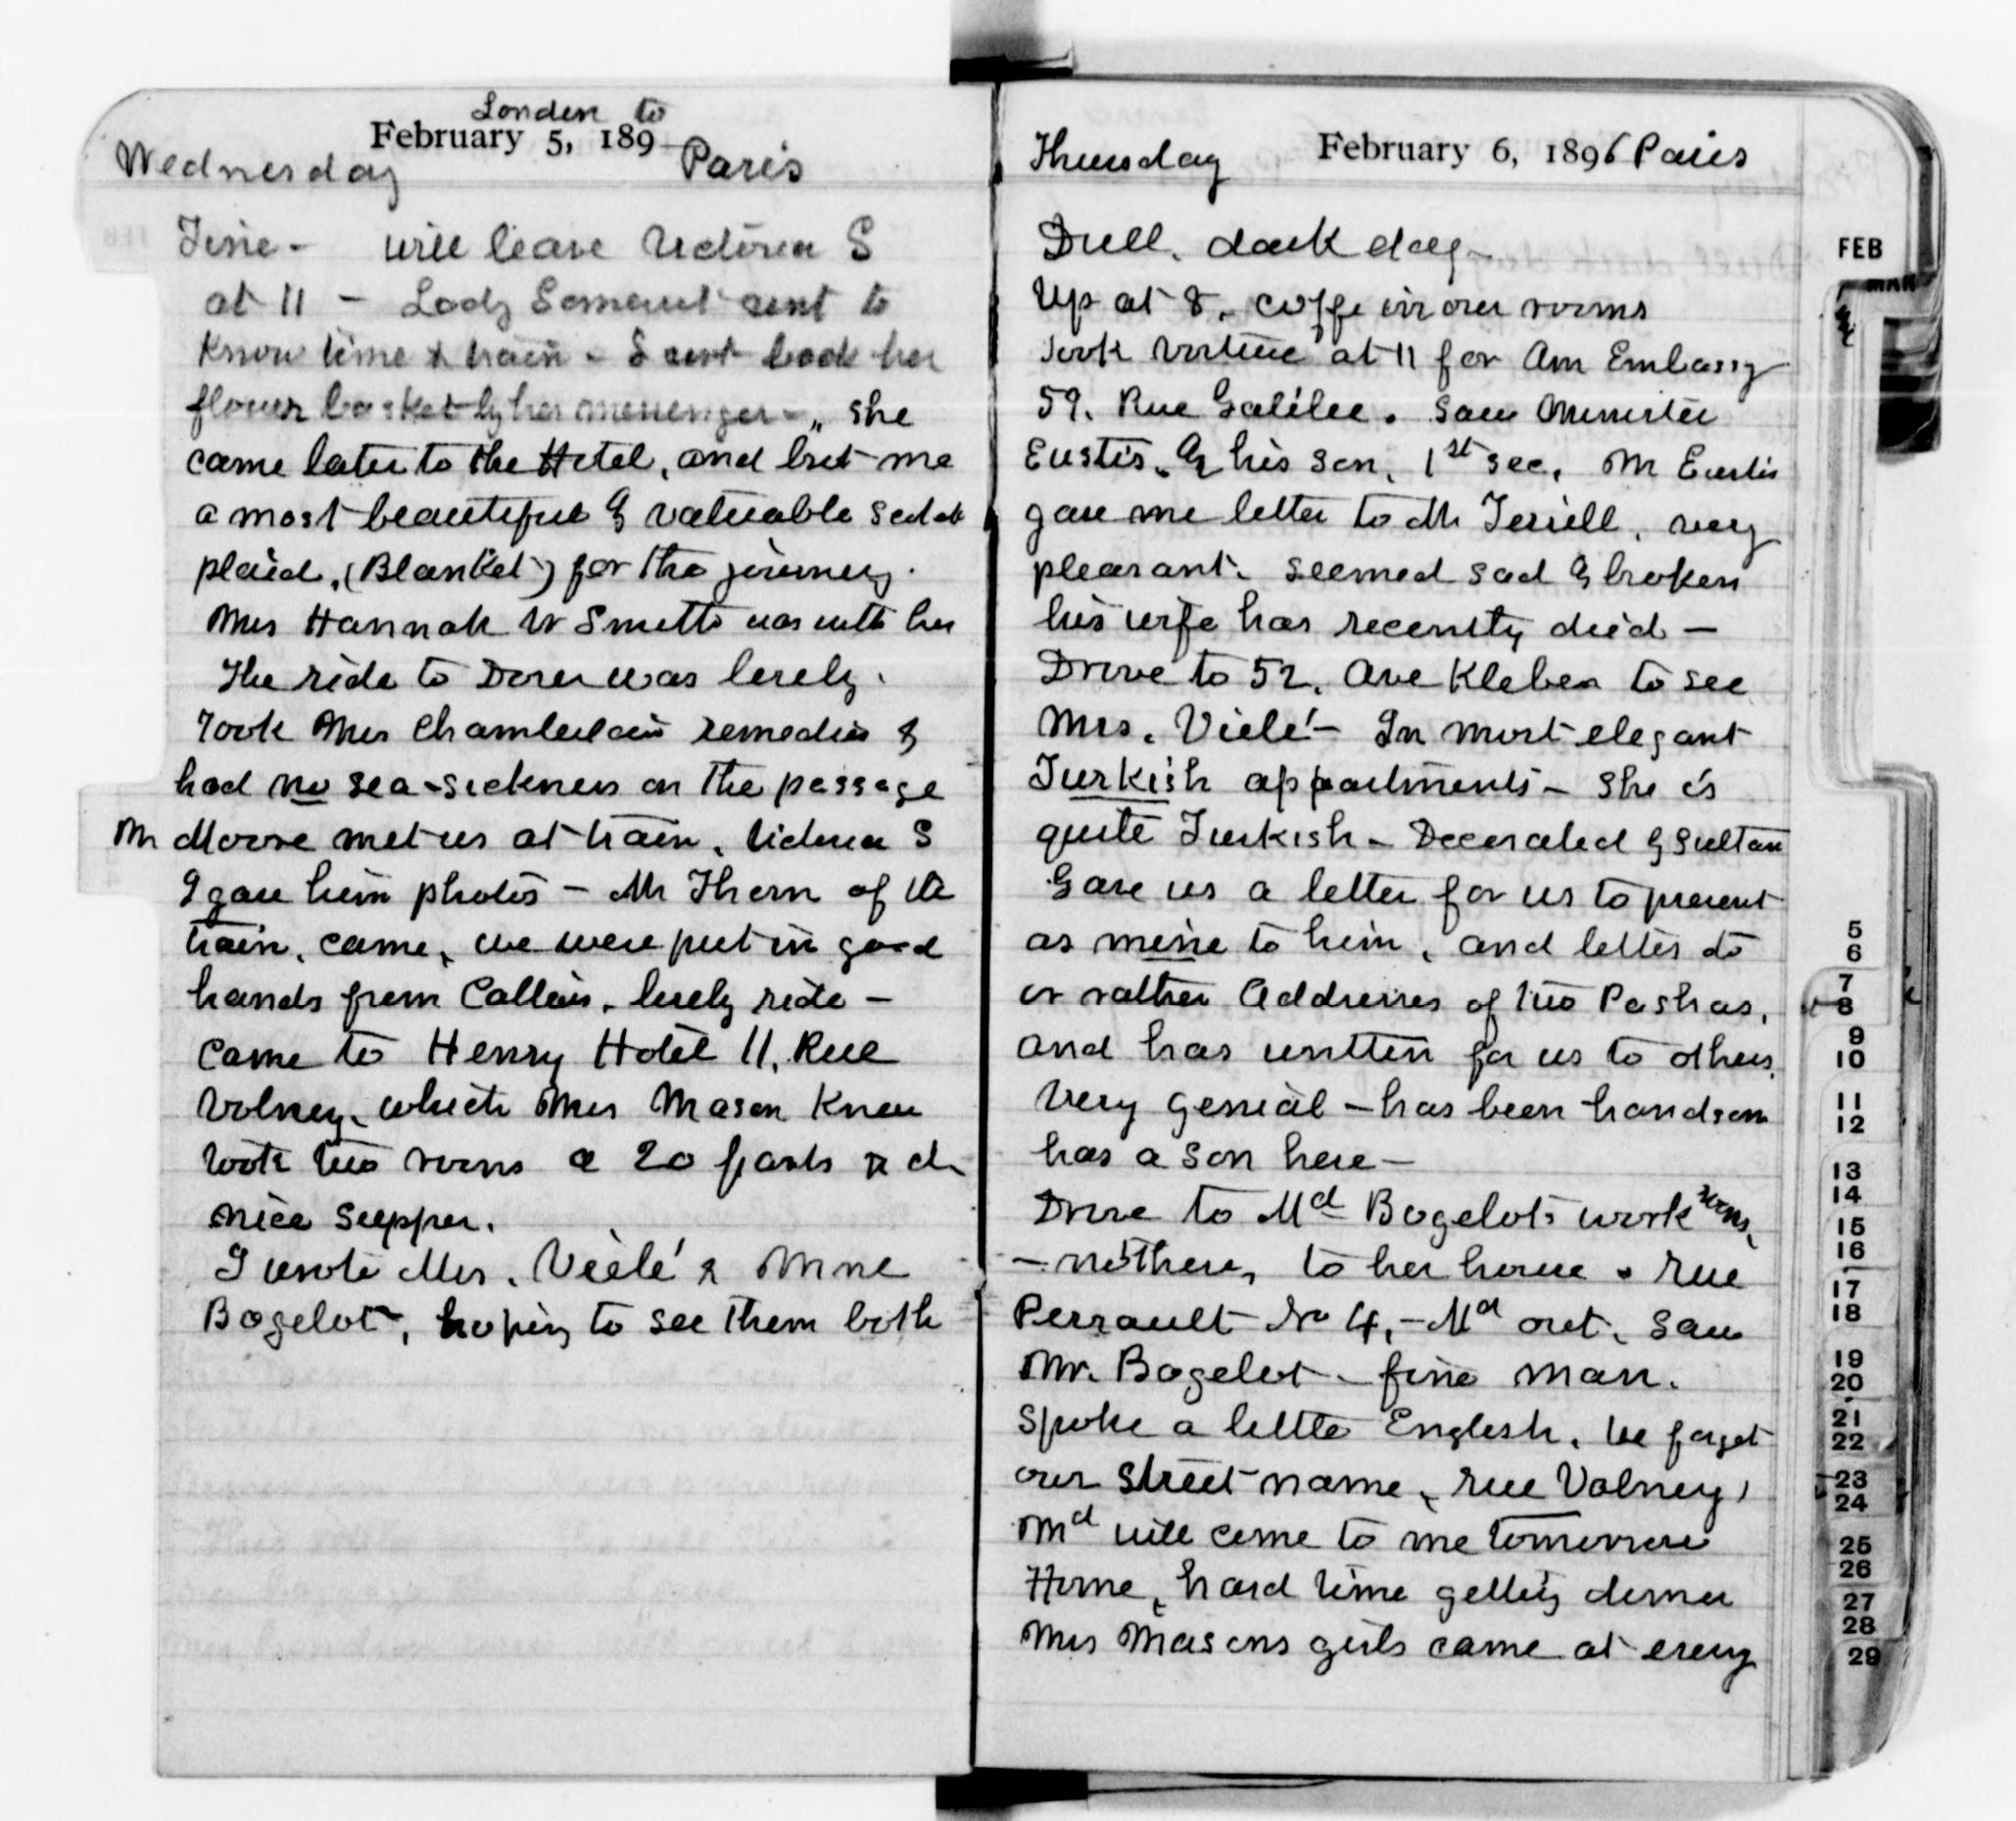 London to
February 5, 189
Wednesday Paris
Fine - will leave Victoria S
at 11 - Lady Somerset sent to
know time & train - I sent back her
flower basket by her messenger - she
came later to the Hotel, and brot me
a most beautiful & valuable
plaid, (Blanket) for the journey.
Mrs Hannah W Smith was with her
The ride to Dover was lovely.
Took Mrs Chamberlain remedies &
had no sea-sickness on the passage
Mr Moore met us at train, Victoria S
I gave him photos - Mr Thorn of the
train, came, we were put in good
hands from Callais, lovely ride -
Came to Henry Hotel 11, Rue
Volney, which Mrs Mason knew
took two rooms a 20 francs
nice supper.
I wrote Mrs. Vielé & Mme
Bogelot, hoping to see them both
Thursday February 6, 1896 Paris
Dull, dark day -
Up at 8, coffe in our rooms
Took at 11 for Am Embassy
59, Rue Galilee. Saw Minister
Eustis, & his son, 1st sec, Mr Eustis
gave me letter to Mr Terrell, very
pleasant. seemed sad & broken
his wife has recently died -
Drove to 52, Ave Kleber to see
Mrs. Vielé - In most elegant
Turkish appartments - She is
quite Turkish - Decorated by Sultan
Gave us a letter for us to present
as mine to him, and letters to
or rather Addresses of two Pashas,
and has written for us to others.
Very genial - has been handsom
has a son here -
Drove to Md Bogelots work rooms,
- not there, to her house. rue
Perrault No 4, - Md out. Saw
Mr. Bogelot - fine man.
Spoke a little English. We forgot
our street name, rue Volney,
Md will come to me tomorrow
Home, hard time getting dinner
Mrs Masons girls came at eveng
FEB
MAR
5
6
7
8
9
10
11
12
13
14
15
16
17
18
19
20
21
22
23
24
25
26
27
28
29